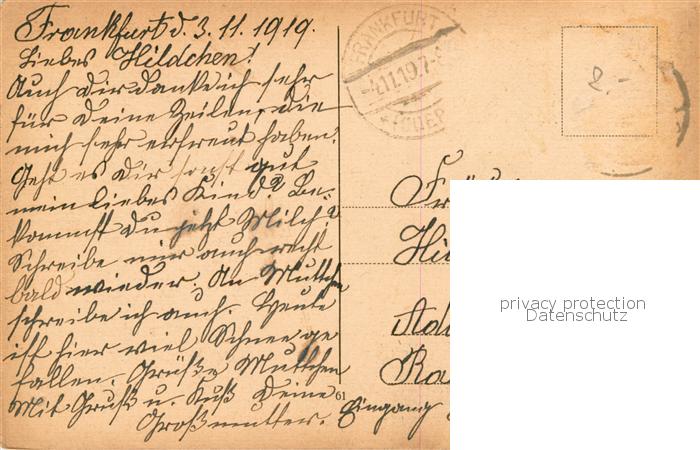 Frankfurt d. 3. 11. 1919.
Liebes Hildchen!
Auch Dir danke ich sehr
für Deine Zeilen, die
mich sehr erfreut haben.
Geht es Dir sonst gut
mein liebes Kind? Be-
kommst Du jetzt Milch?
Schreibe mir auch recht
bald wieder. An Muttchen
schreibe ich auch. Heute
ist hier viel Schnee ge
fallen. Grüße Muttchen
Mit Gruß u. Kuß Deine
Großmutter.
61
FRANKFURT
11.19.7-
2.-
Hil
Ad
Ra
Eingang
privacy protection
Datenschutz